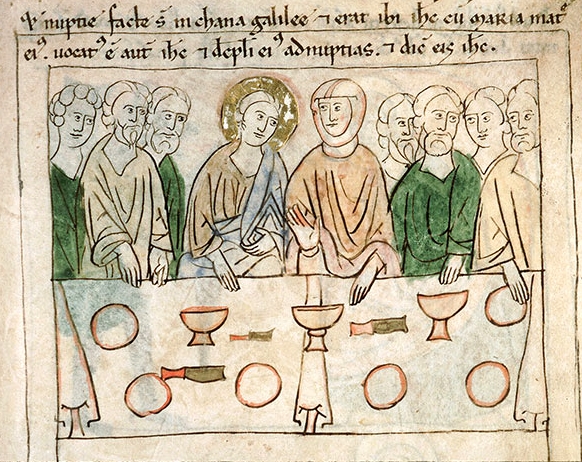 nuptie facte s̄ in chana galilee ⁊ erat ibi ihc̄ cū maria mat᷎
ei⁹. vocat⁹ ē aut̄ ihc̄ ⁊ discipli ei⁹ ad nuptias. ⁊ dic̄ eis ihc̄.